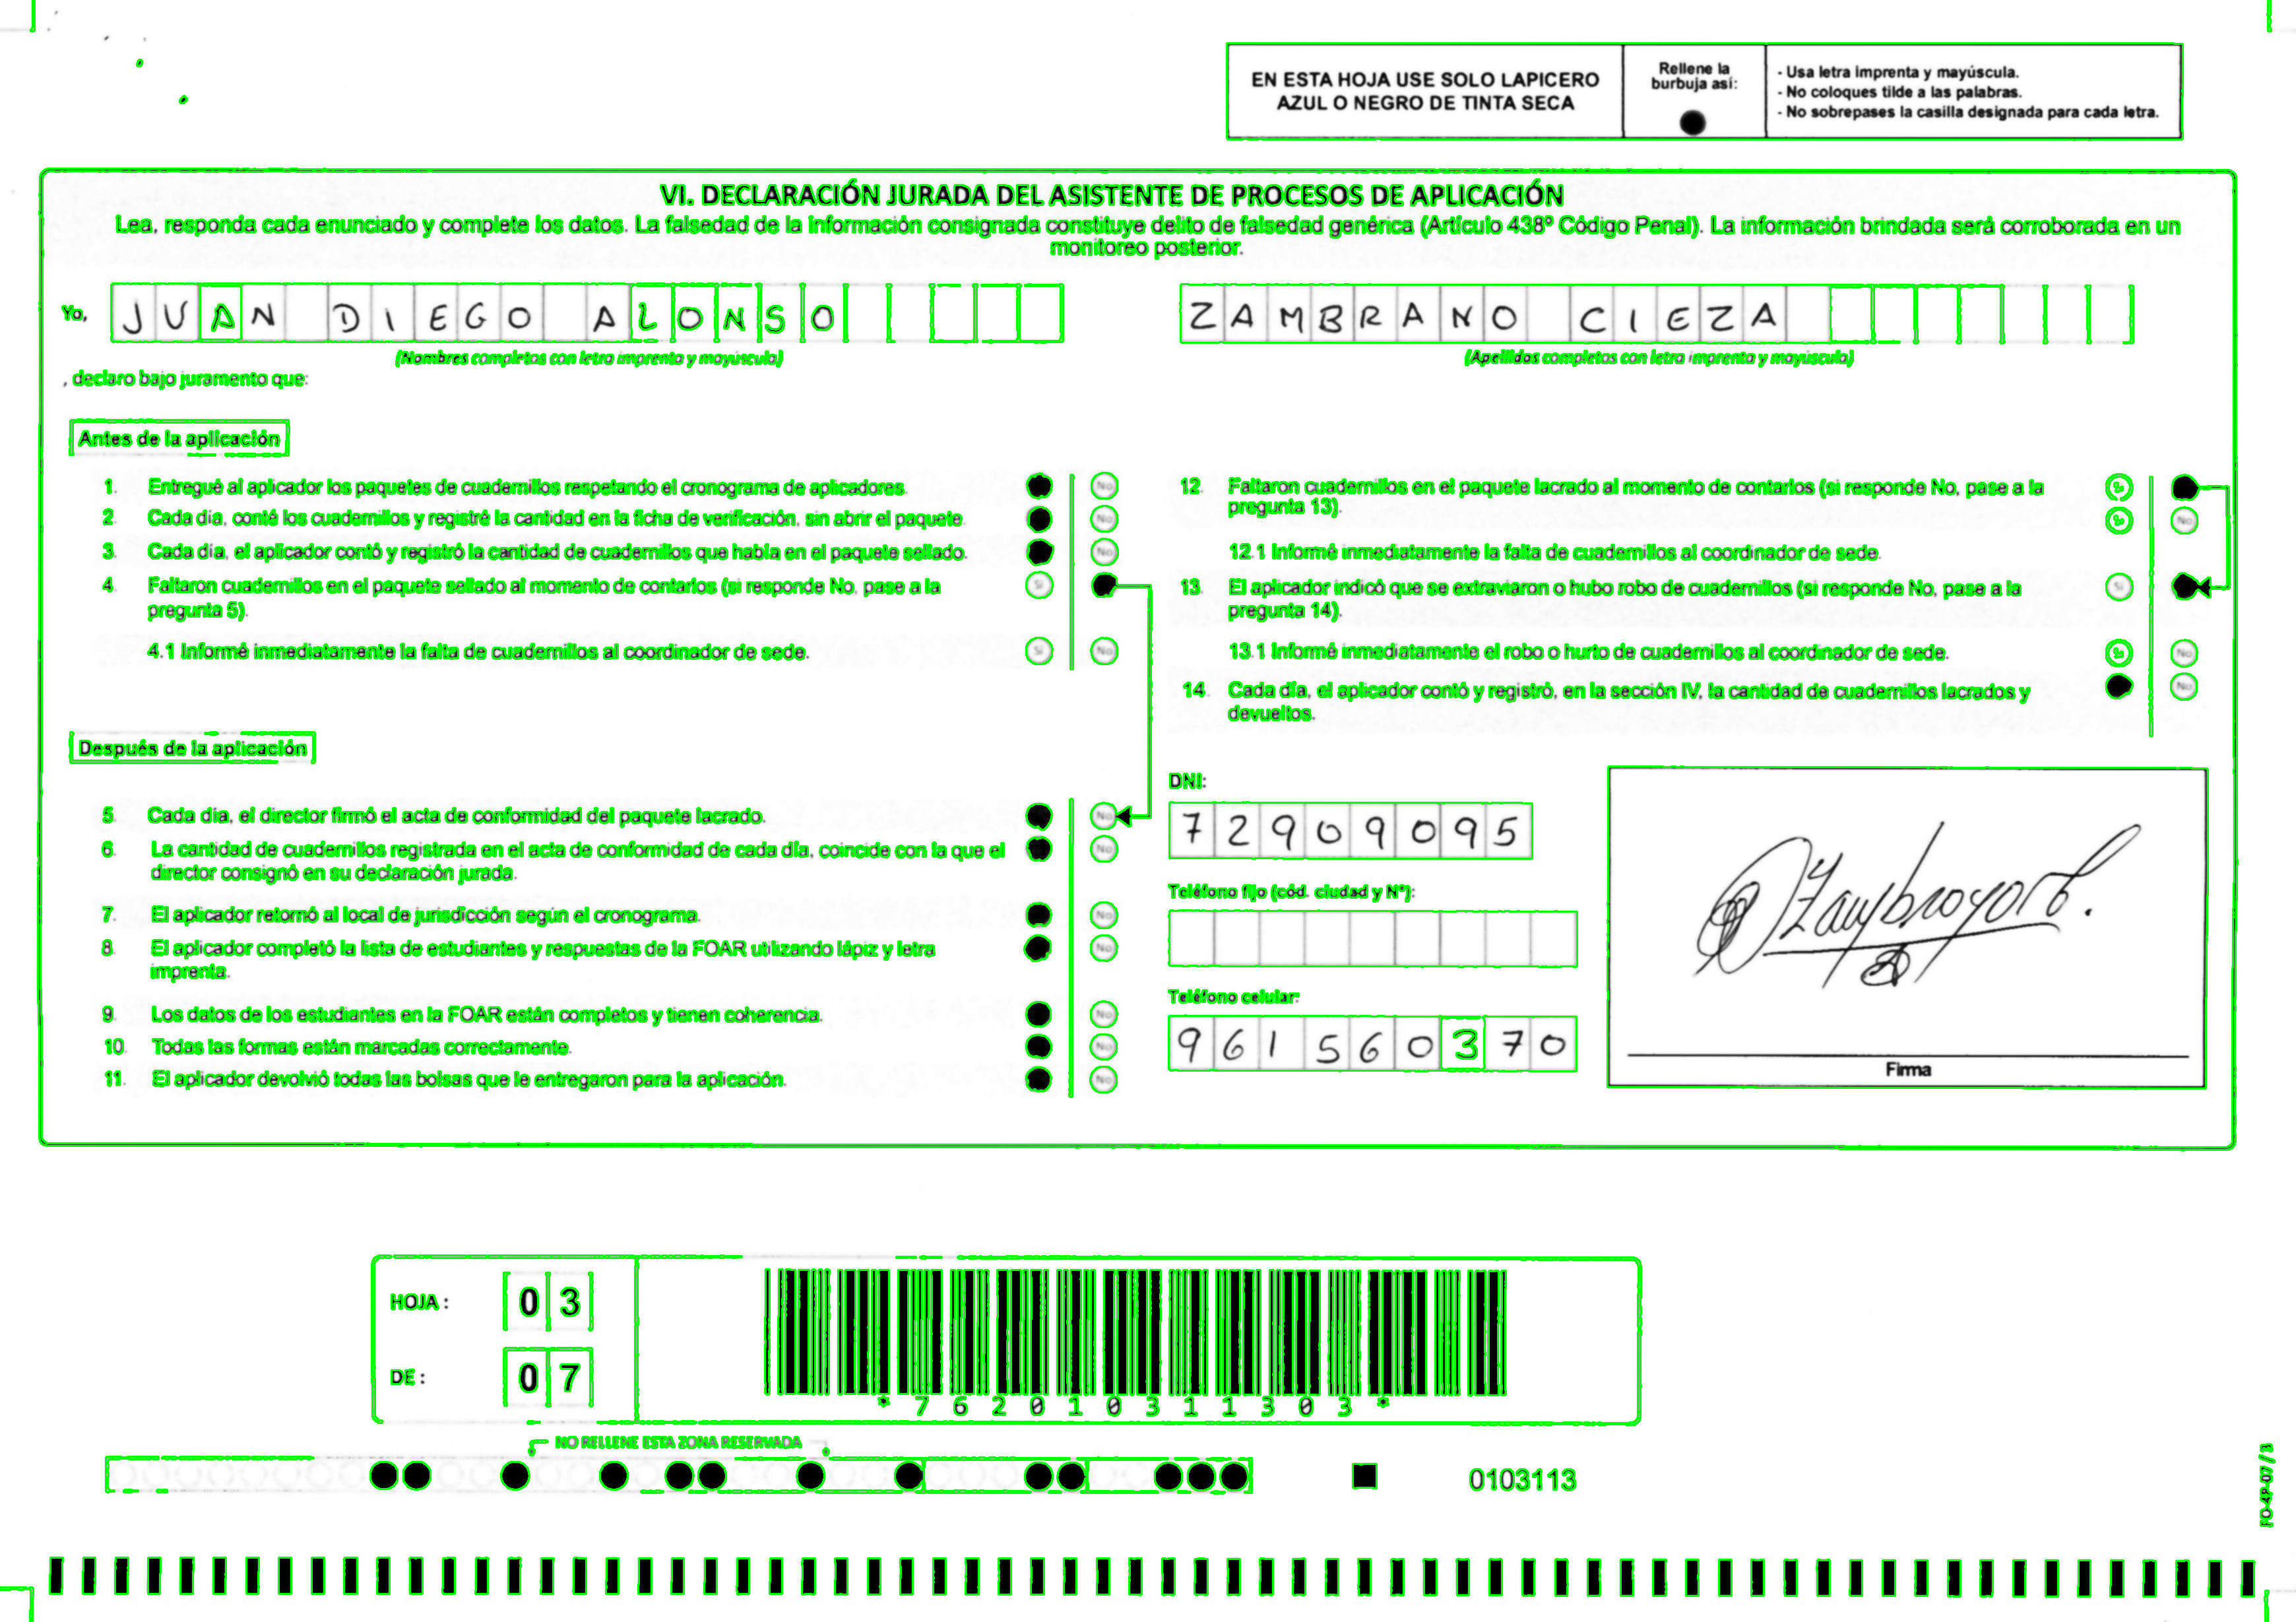 EN ESTA HOJA USE SOLO LAPICERO
AZUL O NEGRO DE TINTA SECA
Rellene la
burbuja así:
- Usa letra imprenta y mayúscula.
- No coloques tilde a las palabras.
- No sobrepases la casilla designada para cada letra.
VI. DECLARACIÓN JURADA DEL ASISTENTE DE PROCESOS DE APLICACIÓN
Lea, responda cada enunciado y complete los datos. La falsedad de la información consignada constituye delito de falsedad genérica (Artículo 438º Código Penal). La información brindada será corroborada en un
monitoreo posterior.
Yo, JUAN DIEGO ALONSO ZAMBRANO CIEZA
(Nombres completos con letra imprenta y mayúscula) (Apellidos completos con letra imprenta y mayúscula)
, declaro bajo juramento que:
Antes de la aplicación
1. Entregué al aplicador los paquetes de cuadernillos respetando el cronograma de aplicadores. No
2. Cada día, conté los cuadernillos y registré la cantidad en la ficha de verificación, sin abrir el paquete. No
3. Cada día, el aplicador contó y registró la cantidad de cuadernillos que había en el paquete sellado. No
4. Faltaron cuadernillos en el paquete sellado al momento de contarlos (si responde No, pase a la Si
pregunta 5).
4.1 Informé inmediatamente la falta de cuadernillos al coordinador de sede. Si No
Después de la aplicación
5. Cada día, el director firmó el acta de conformidad del paquete lacrado. No
6. La cantidad de cuadernillos registrada en el acta de conformidad de cada día, coincide con la que el No
director consignó en su declaración jurada.
7. El aplicador retornó al local de jurisdicción según el cronograma. No
8. El aplicador completó la lista de estudiantes y respuestas de la FOAR utilizando lápiz y letra No
imprenta.
9. Los datos de los estudiantes en la FOAR están completos y tienen coherencia. No
10. Todas las formas están marcadas correctamente. No
11. El aplicador devolvió todas las bolsas que le entregaron para la aplicación. No
12. Faltaron cuadernillos en el paquete lacrado al momento de contarlos (si responde No, pase a la Si
pregunta 13). Si No
12.1 Informé inmediatamente la falta de cuadernillos al coordinador de sede.
13. El aplicador indicó que se extraviaron o hubo robo de cuadernillos (si responde No, pase a la Si
pregunta 14).
13.1 Informé inmediatamente el robo o hurto de cuadernillos al coordinador de sede. Si No
14. Cada día, el aplicador contó y registró, en la sección IV, la cantidad de cuadernillos lacrados y No
devueltos.
DNI:
72909095
Teléfono fijo (cód. ciudad y Nº):
Teléfono celular:
961560370
Firma
HOJA : 03
DE : 07
*762010311303*
NO RELLENE ESTA ZONA RESERVADA
0103113
FO-4P-07 / 3